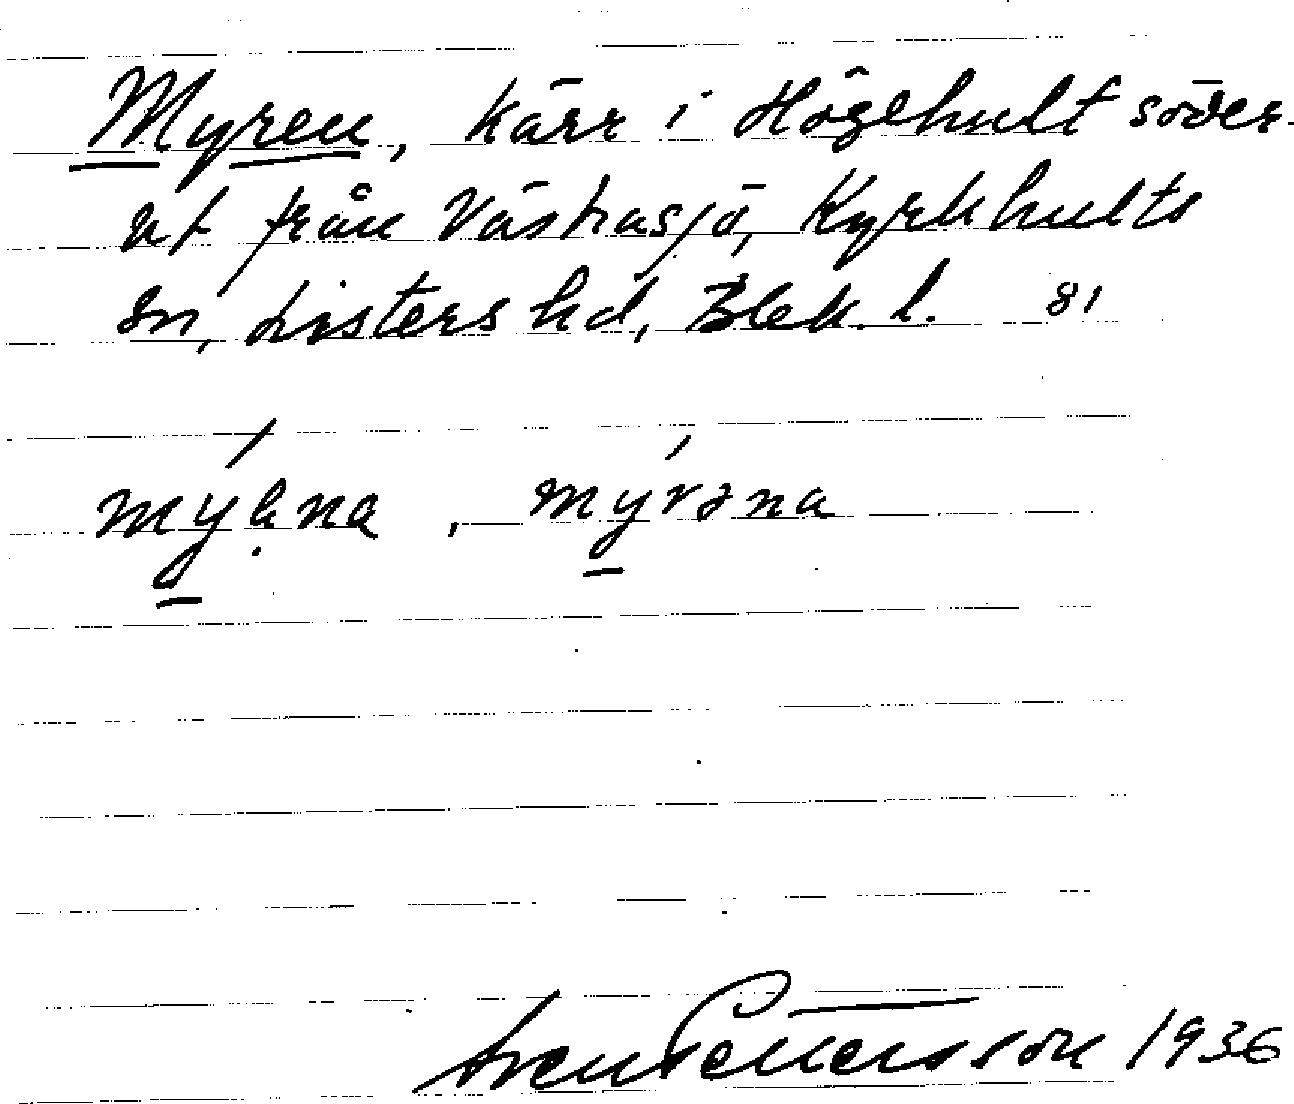 Myren, kärr i Högehult söder-
ut från Västrasjö, Kyrkhults
sn, Listers hd, Blek. l. 81
Sven Pettersson 1936